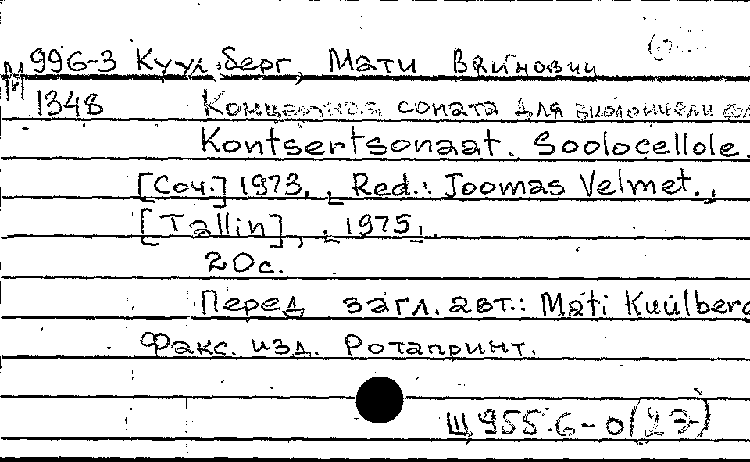 М 996-3 Куульберг, Мати Вяйнович
1348 Концертная соната для виолончели
Kontsertsonaat. Soolocellole.
[Соч.] 1973. Red.: Toomas Velmet.,
[Tallin], 1975.
20 с.
Перед загл. авт.: Mati Kuulberg
Факс. изд. Ротапринт.
Щ 955.6-0